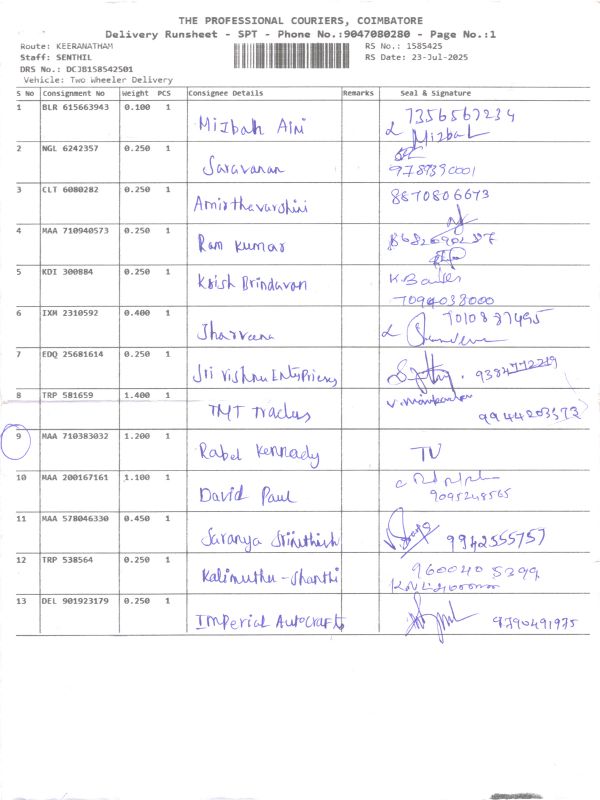 THE PROFESSIONAL COURIERS, COIMBATORE
Delivery Runsheet - SPT - Phone No.:9047080280 - Page No.:1
Route: KEERANATHAM RS No.: 1585425
Staff: SENTHIL RS Date: 23-Jul-2025
DRS No.: DCJB158542501
Vehicle: Two Wheeler Delivery
S No Consignment No Weight PCS Consignee Details Remarks Seal & Signature
1 BLR 615663943 0.100 1 Mizbah Aini 7356567234
Mizbah
2 NGL 6242357 0.250 1 Saravanan
9787390001
3 CLT 6080282 0.250 1 Amirthavarshini 8870806673
4 MAA 710940573 0.250 1 Ram Kumar
5 KDI 300884 0.250 1 Krish Brindavan
7094038000
6 IXM 2310592 0.400 1 Jharveena 7010887495
7 EDQ 25681614 0.250 1 Sri Vishnu Enterprises 9384772219
8 TRP 581659 1.400 1 TMT Traders V. Manikandan
9944203572
9 MAA 710383032 1.200 1 Rabel Kennady TV
10 MAA 200167161 1.100 1 David Paul
9095248565
11 MAA 578046330 0.450 1 Saranya Srinithish 9942555757
12 TRP 538564 0.250 1 Kalimuthu - Shanthi 9600405399
13 DEL 901923179 0.250 1 Imperial AutoCrafts 9790491975